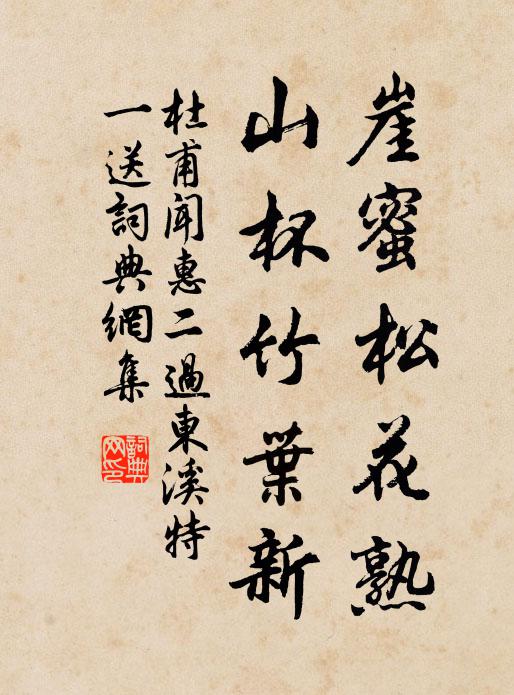 崖蜜松花熟
山杯竹葉新
杜甫聞惠二過東溪特
一送詞典網集
詞典
网印